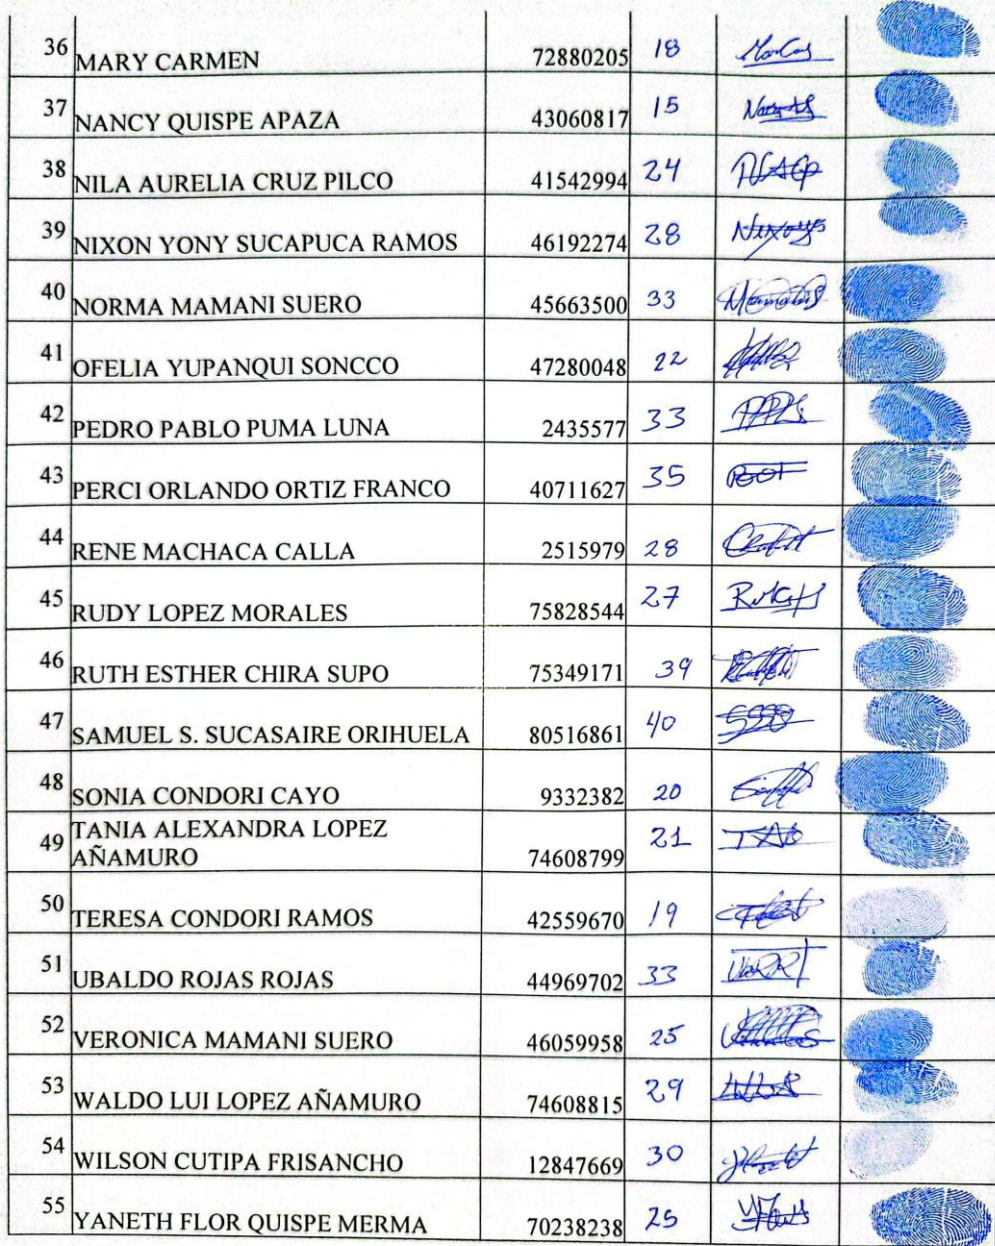 36 MARY CARMEN 72880205 18
37 NANCY QUISPE APAZA 43060817 15
38 NILA AURELIA CRUZ PILCO 41542994 24
39 NIXON YONY SUCAPUCA RAMOS 46192274 28
40 NORMA MAMANI SUERO 45663500 33
41 OFELIA YUPANQUI SONCCO 47280048 22
42 PEDRO PABLO PUMA LUNA 2435577 33
43 PERCI ORLANDO ORTIZ FRANCO 40711627 35
44 RENE MACHACA CALLA 2515979 28
45 RUDY LOPEZ MORALES 75828544 27
46 RUTH ESTHER CHIRA SUPO 75349171 39
47 SAMUEL S. SUCASAIRE ORIHUELA 80516861 40
48 SONIA CONDORI CAYO 9332382 20
49 TANIA ALEXANDRA LOPEZ
AÑAMURO 74608799 21
50 TERESA CONDORI RAMOS 42559670 19
51 UBALDO ROJAS ROJAS 44969702 33
52 VERONICA MAMANI SUERO 46059958 25
53 WALDO LUI LOPEZ AÑAMURO 74608815 29
54 WILSON CUTIPA FRISANCHO 12847669 30
55 YANETH FLOR QUISPE MERMA 70238238 25